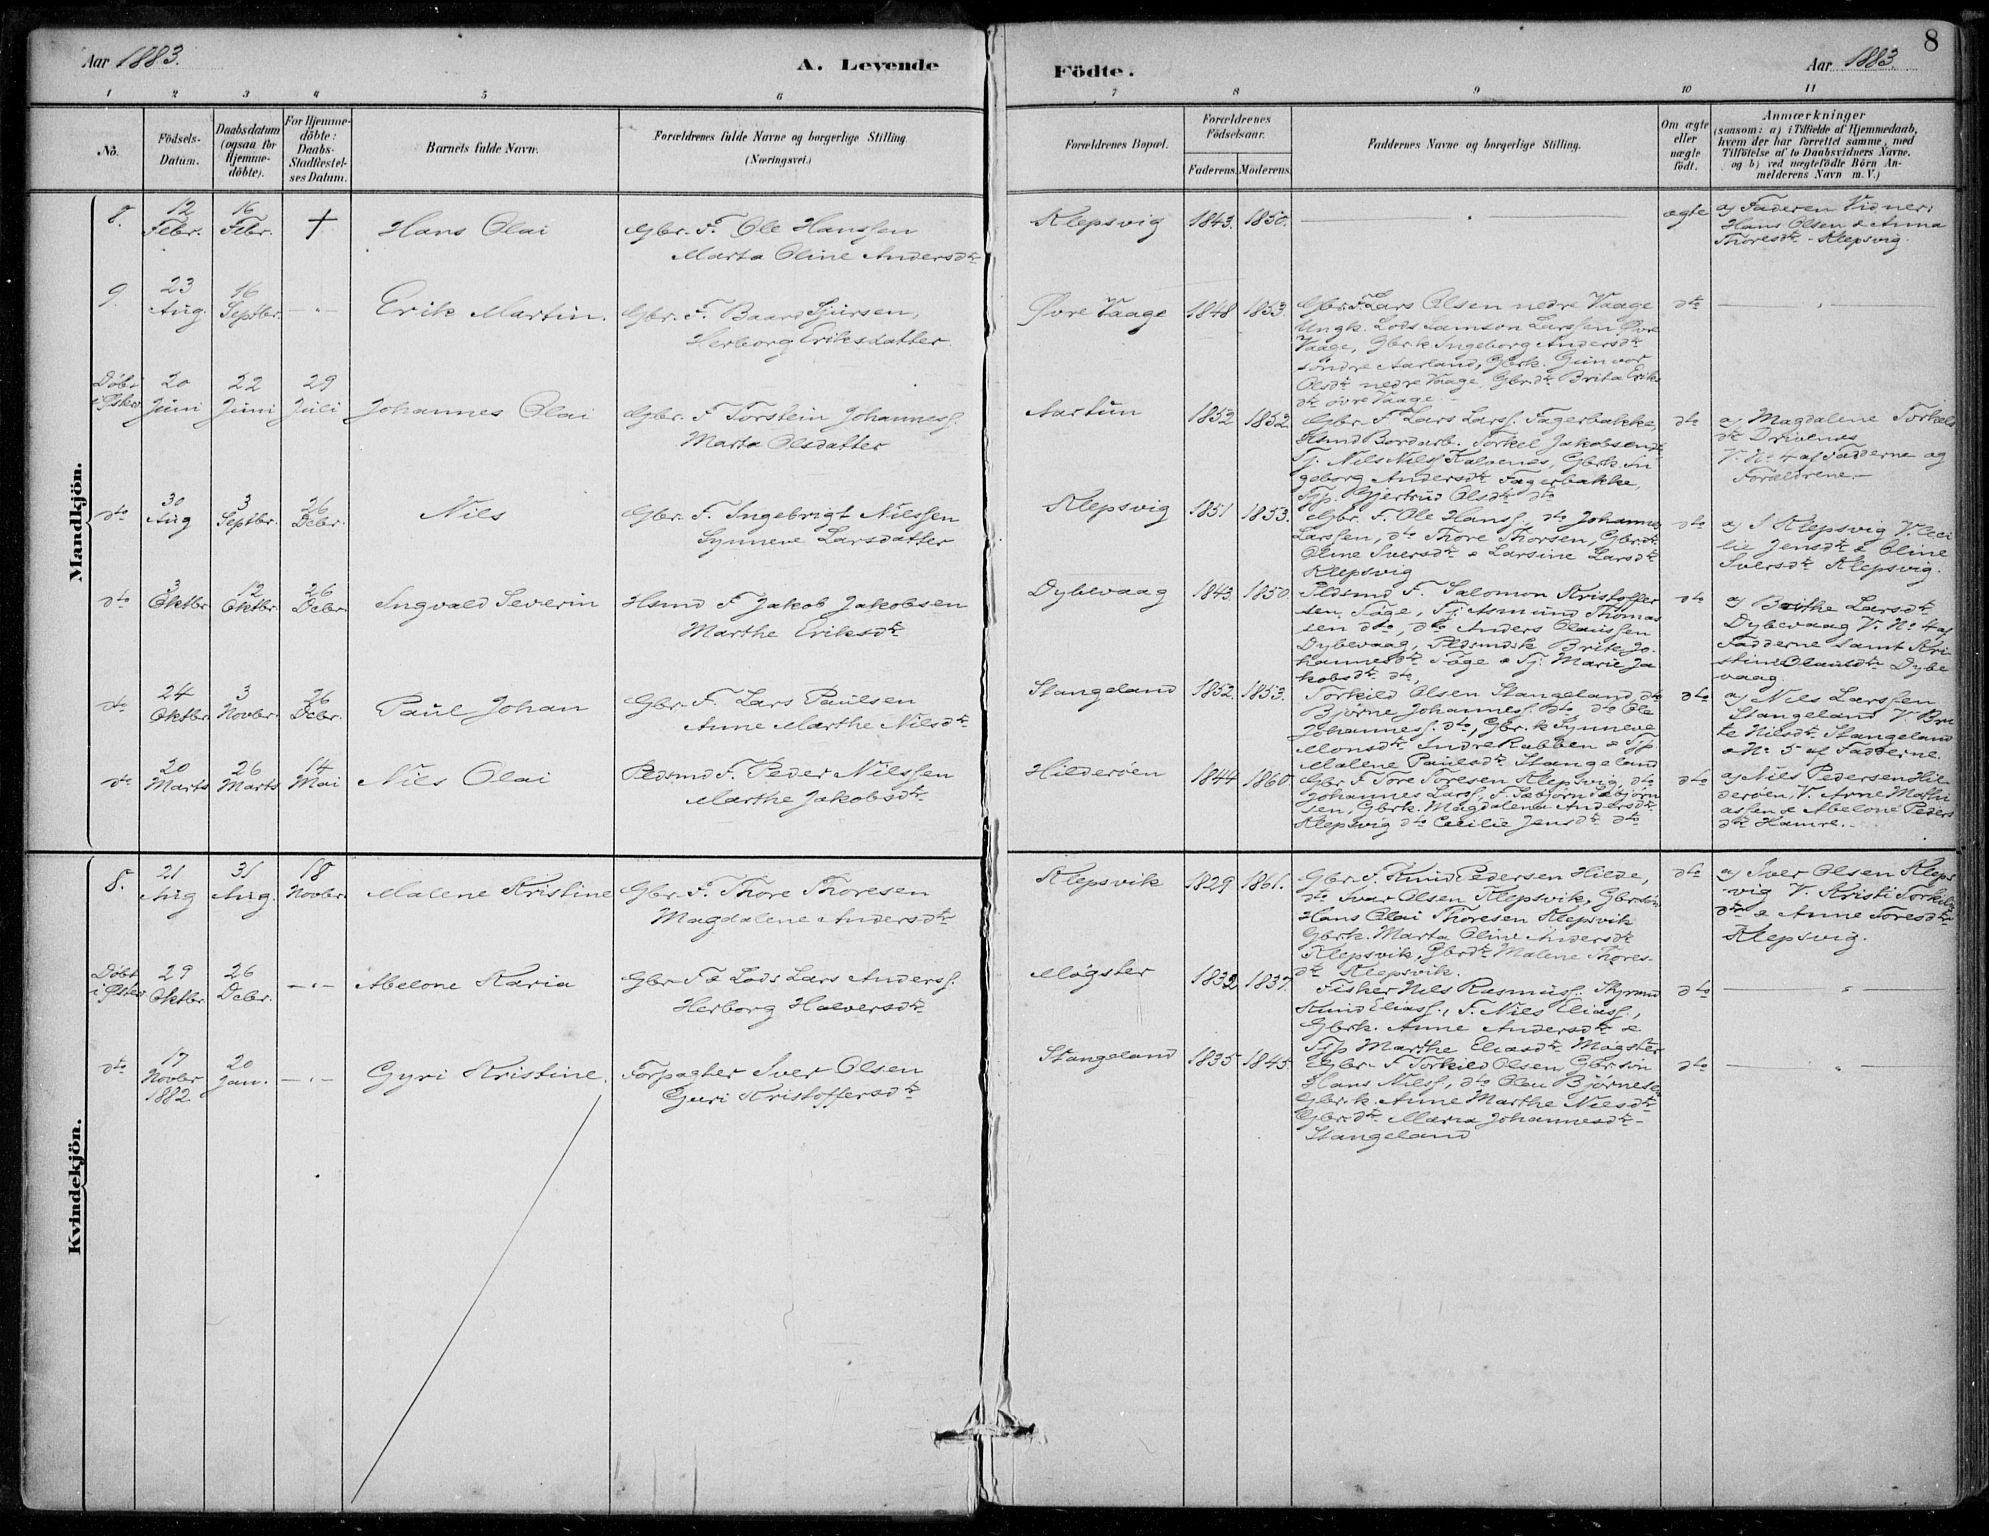 Aar 1883.
A. Levende
Födte.
Aar 1883
8
1 2 3 4 5 6 7 8 9 10 11
No.
Födsels-
Datum.
Daabsdatum
(ogsaa for
Hjemme-
döbte).
For Hjemme-
döbte:
Daabs-
Stadfæstel-
ses Datum.
Barnets fulde Navn.
Forældrenes fulde Navne og borgerlige Stilling.
(Næringsvei.)
Forældrenes Bopæl.
Forældrenes
Födselsaar.
Faderens. Moderens.
Faddernes Navne og borgerlige Stilling.
Om ægte
eller
uægte
födt.
Anmærkninger
(saasom: a) i Tilfælde af Hjemmedaab,
hvem der har forrettet samme, med
Tilföielse af to Daabsvidners Navne,
og b) ved uægtefödte Börn An-
melderens Navn m. V.)
Mandkjön.
8.
12
Febr.
16
Febr.
†
Hans Olai
Gbr. F. Ole Hanssen
Marta Oline Andersdtr
Klepsvig
1843. 1850.
ægte
a) Faderen Vidner:
Hans Olsen & Anna
Thoresdtr - Klepsvig.
9.
23
Aug.
16
Septbr.
Erik Martin.
Gbr. F. Baard Sjursen,
Herborg Eriksdatter.
Øvre Vaage
1848 1853.
Gbr. F. Lars Olsen nedre Vaage
Ungk. Lods Samson Larssen Øvre
Vaage, Gbrk Ingeborg Andersdtr
söndre Aarland, Gbrk. Gunvor
Olsdtr nedre Vaage, Gbrdtr Brita Eriks
dtr øvre Vaage.
dto
Döbt
20
Juni
22
Juni
29
Juli
Johannes Olai
Gbr. F Torstein Johanness.
Marta Olsdatter
Aartun
1852 1852
Gbr. F Lars Larss. Fagerbakke,
Hsmd Bordarb. Torkel Jakobsen dto
Tj. Nils Nilss Kalvenes, Gbrk. In-
geborg Andersdtr Fagerbakke,
Tjp. Gjertrud Olsdtr dto
dto
a) Magdalene Torkels
dtr Drivenes
V. No 4 af Fadderne og
Forældrene.
dto
30
Aug
3
Septbr.
26
Debr.
Nils
Gbr. F. Ingebrigt Nilssen
Synneve Larsdatter
Klepsvig
1851 1853.
Gbr. F. Ole Hanss., dto Johannes
Larssen, dto Thore Thorsen, Gbrdtr
Oline Iversdtr & Larsine Larsdtr
Klepsvig
dto
a) S Klepsvig V. Ceci
lie Jensdtr & Oline
Iversdtr Klepsvig.
dto
3
Oktbr
12
Oktbr.
26
Debr.
Ingvald Severin
Hsmd F Jakob Jakobsen
Marthe Eriksdtr
Dybevaag
1843. 1850
Pldsmd F. Salomon Kristoffer
sen Töge, Tj Asmund Thomas
sen dto, dto Anders Olaussen
Dybevaag, Pldsmdsk Brite Jo-
hannesdtr Töge & Tj. Marie Ja
kobsdtr dto,
dto
a) Berthe Larsdtr
Dybevaag V. No 4 af
Fadderne samt Kri
stine Olausdtr Dybe
vaag.
dto
24
Oktbr.
3
Novbr.
26
Debr.
Paul Johan
Gbr. F. Lars Paulsen
Anne Marthe Nilsdtr
Stangeland
1852. 1853.
Torkild Olsen Stangeland, dto
Björne Johanness. dto dto Ole
Johanness. dto, Gbr.k Synneve
Monsdtr Indre Rabben & Tjp.
Malene Paulsdtr Stangeland
dto
a) Nils Larssen
Stangeland V. Bri
te Nilsdtr Stangeland
& No. 5 af Fadderne.
dto
20
Marts
26
Marts
14
Mai
Nils Olai
Pldsmd F. Peder Nilssen
Marthe Jakobsdtr
Hilderöen
1844 1860
Gbr. F Tore Toresen Klepsvig dto
Johannes Larss, F. Sæbjörn Sæbjörn
sen, Gbrk. Magdalena Andersdtr
Klepsvig dto Cecilie Jensdtr dto
dto
a) Nils Pedersen Hil-
deröen, V. Arne Mathi
assen & Abelone Peders
dtr Hamre.
Kvindekjön.
8.
21
Aug
31
Aug.
18
Novbr.
Malene Kristine
Gbr. F. Thore Thoresen
Magdalene Andersdtr
Klepsvik
1829 1861.
Gbr. F. Knud Pedersen Hilde,
dto Ivar Olsen Klepsvik, Gbrsön
Hans Olai Thoresen Klepsvik
Gbrk. Marta Oline Andersdtr
Klepsvik, Gbrdtr Malene Thores-
dtr Klepsvik.
dto
a) Iver Olsen Kleps
vig V. Kristi Torkils
dtr & Anne Toresdtr
Klepsvig.
Döbt
29
Oktbr.
26
Debr.
Abelone Karia
Gbr F & Lods Lars Anderss.
Herborg Halversdtr
Mögster
1832, 1837.
Fisker Nils Rasmuss.
Knud Eliass., F. Nils Eliass.,
Gbrk. Anne Andersdtr &
Tjp Marthe Eliasdtr Mögster
dto
dto
17
Novbr
1882
20
Jan.
Gyri Kristine.
Forpagter Iver Olsen
Guri Kristoffersdtr
Stangeland
1835 1845
Gbr. F Torkild Olsen Gbrsön
Hans Nilss, dto Olau Björnesen
Gbr.k. Anne Marthe Nilsdtr
Gbr.dtr Maria Johannesdtr
Stangeland
dto